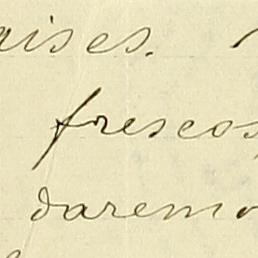 aises.
frescos,
daremo